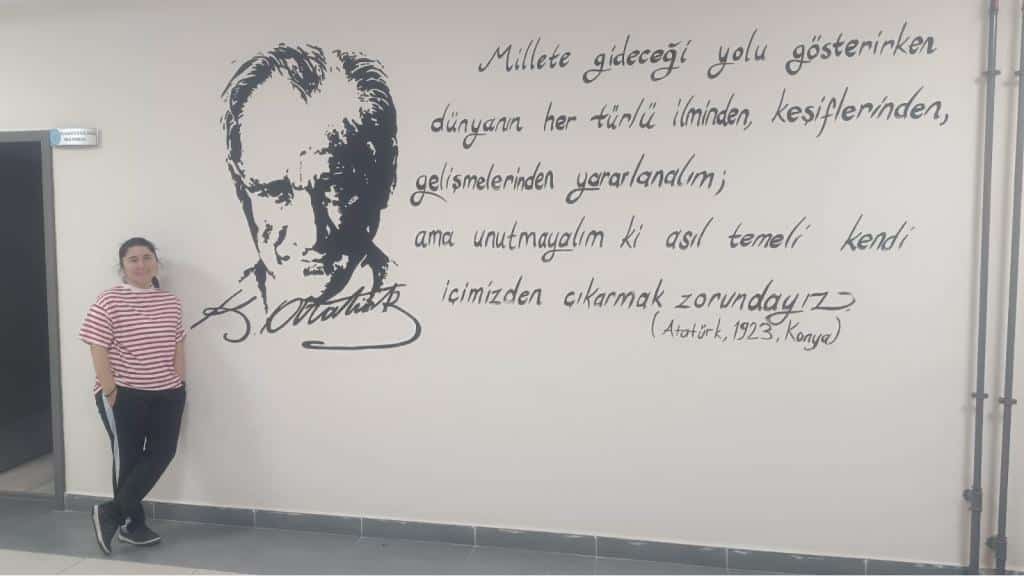 Millete gideceği yolu gösterirken
dünyanın her türlü ilminden, keşiflerinden,
gelişmelerinden yararlanalım;
ama unutmayalım ki asıl temeli kendi
içimizden çıkarmak zorundayız.
(Atatürk, 1923, Konya)
K. Atatürk